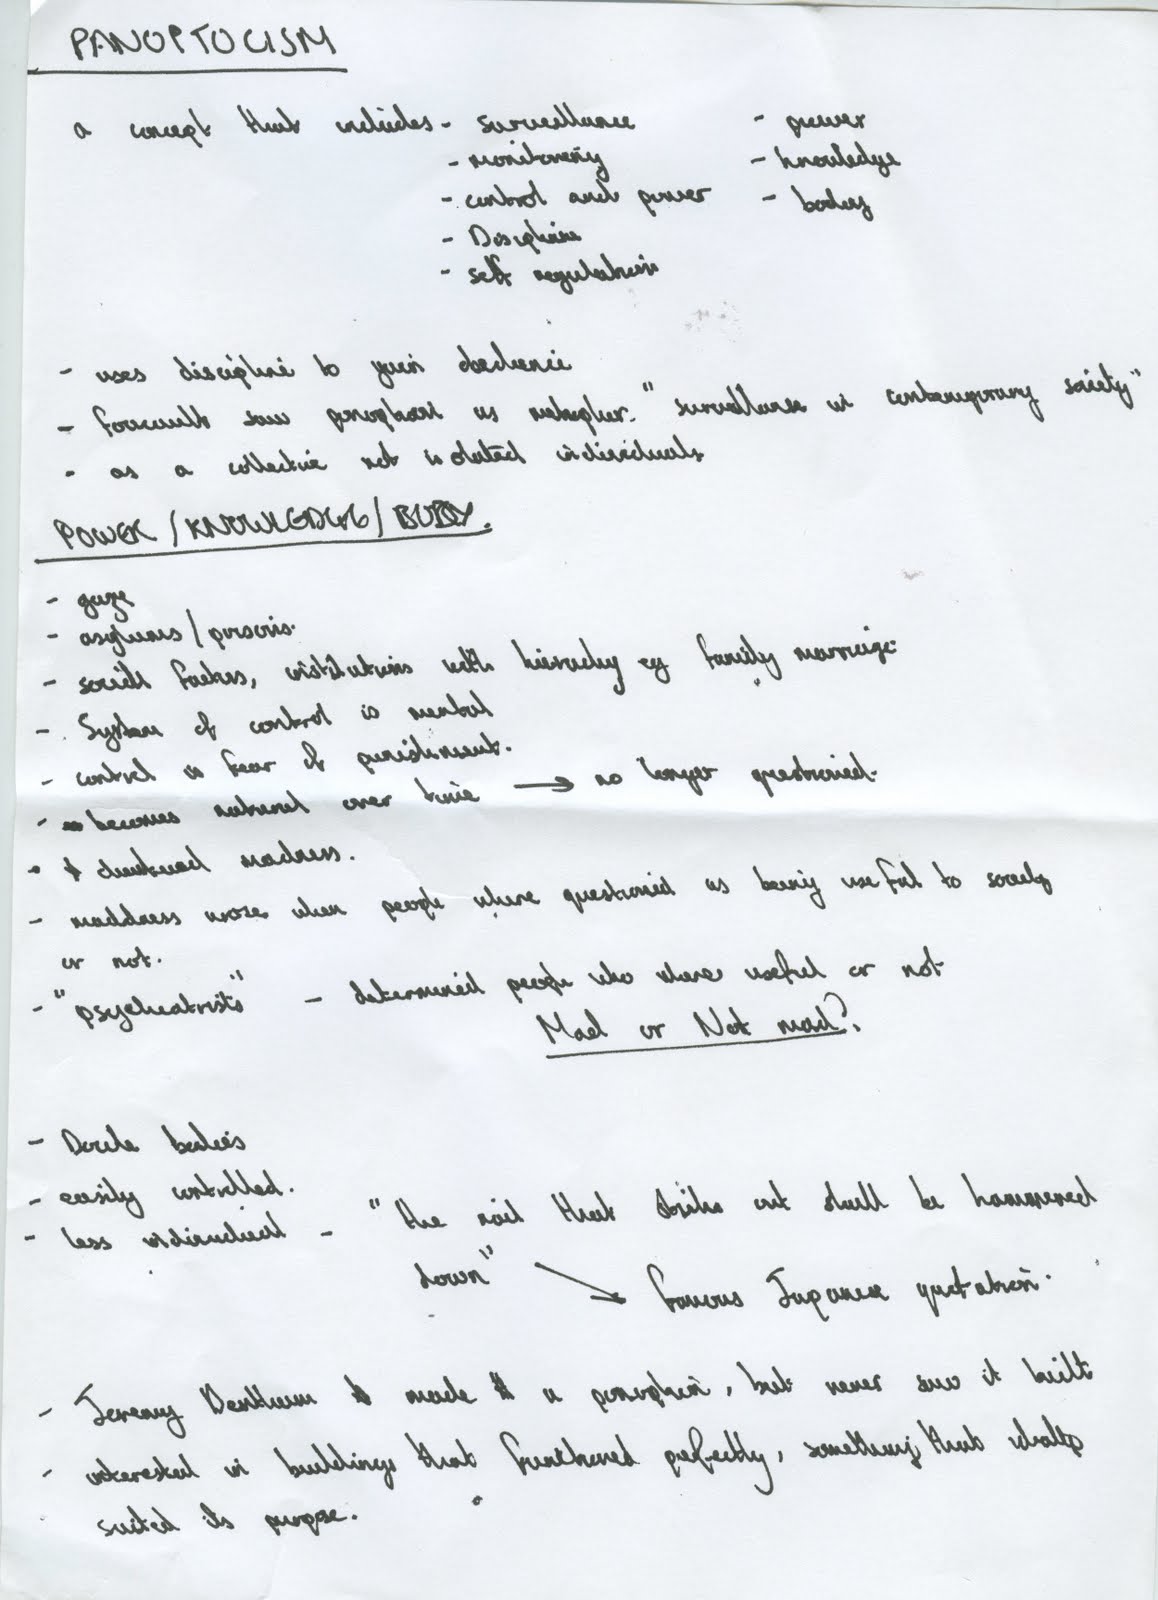 PANOPTOCISM
a concept that includes - surveillance - power
- monitoring - knowledge
- control and power - bodies
- Discipline
- self regulation
- uses discipline to gain obedience
- foucault saw panopticon as metaphor. "surveillance in contemporary society"
- as a collective not isolated individuals
POWER / KNOWLEDGE / BODY.
- gaze
- asylums / prisons.
- social factors, institutions with hierarchy eg family marriage
- System of control is mental
- control is fear of punishment.
- becomes natural over time → no longer questioned.
- madness.
- maddness arose when people where questioned as being useful to society
or not.
- "psychiatrists" - determined people who where useful or not
Mad or Not mad?
- Docile bodies
- easily controlled.
- less individual - "the nail that sticks out shall be hammered
down" → famous Japanese quotation.
- Jeremy Bentham made a panopticon, but never saw it built
- interested in buildings that functioned perfectly, something that
suited its purpose.